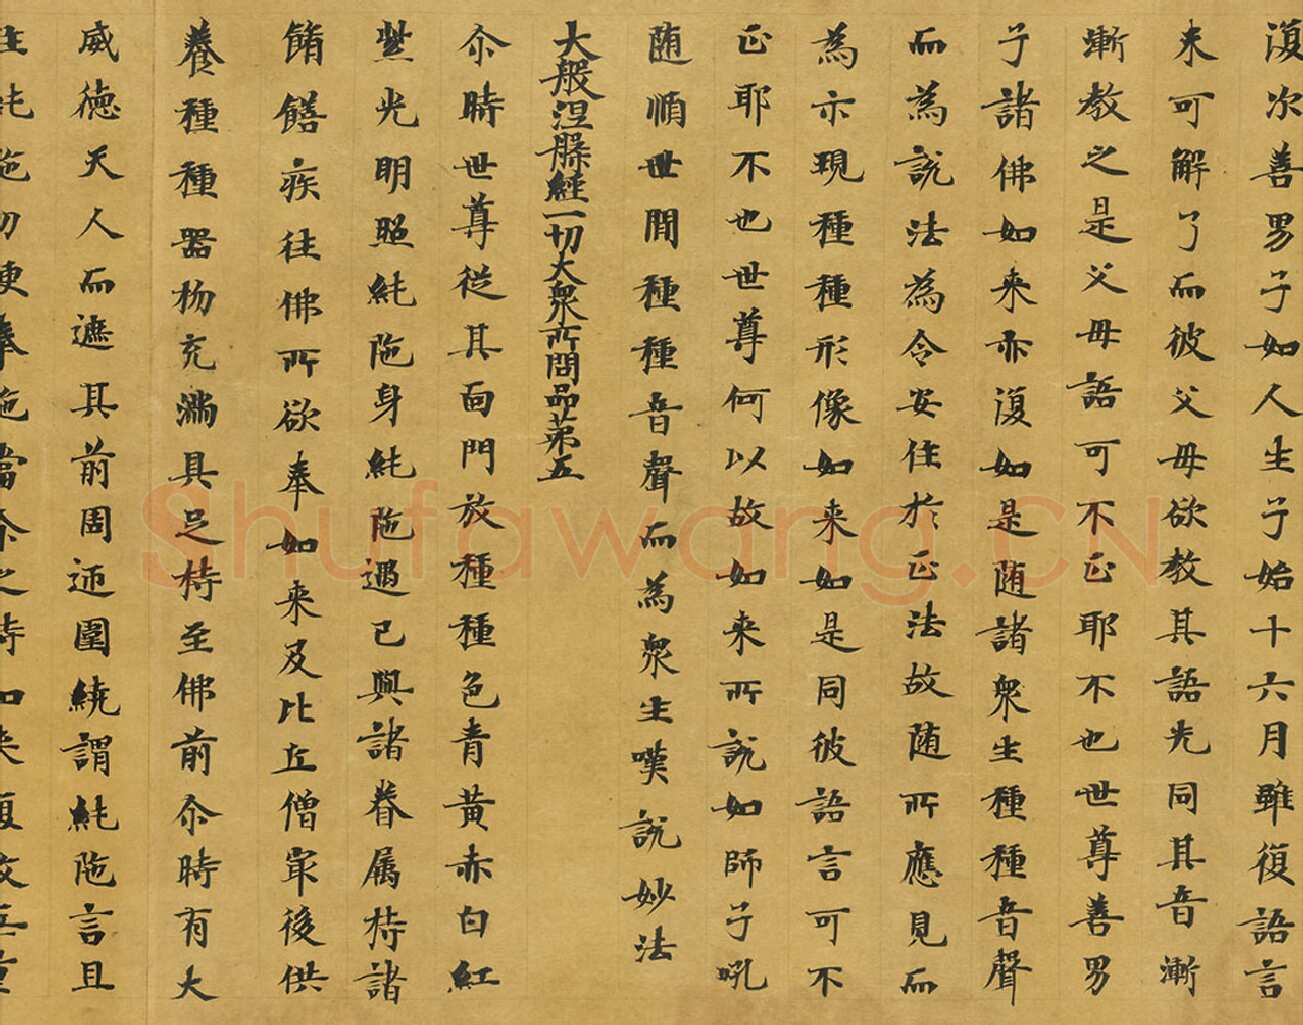 復次善男子如人生子始十六月雖復語言
未可解了而彼父母欲教其語先同其音漸
漸教之是父母語可不正耶不也世尊善男
子諸佛如来亦復如是随諸衆生種種音聲
而為説法為令安住於正法故随所應見而
為示現種種形像如来如是同彼語言可不
正耶不也世尊何以故如来所説如師子吼
随順世間種種音聲而為衆生嘆説妙法
大般涅槃經一切大衆所問品苐五
尒時世尊従其面門放種種色青黄赤白紅
光明照純陁身純陁遇已與諸眷属持諸
餚饍疾往佛所欲奉如来及比丘僧冣後供
養種種器物充滿具足持至佛前尒時有大
威德天人而遮其前周迊圍繞謂純陁言且
住純陁勿便奉施當尒之時如来復放
Shufawang.CN